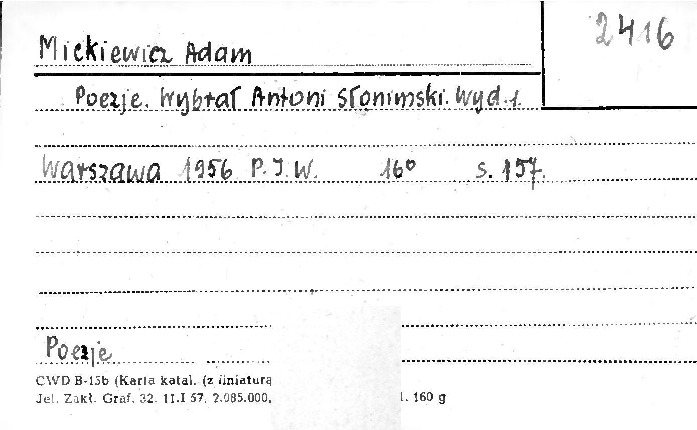 2416
Mickiewicz Adam
Poezje. Wybrał Antoni Słonimski. Wyd. 1.
Warszawa 1956 P.I.W. 16° s. 157.
Poezje
CWD B-15b (Karta katal. (z liniaturą
Jel. Zakł. Graf. 32. 11.I 57. 2.085.000. l. 160 g